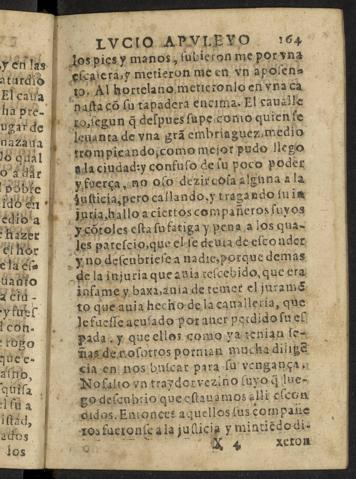 LVCIO APVLEYO 164
los pies y manos, subieron me por vna
escalera, y metieron me en vn aposen-
to. Al hortelano metieronlo en vna ca
nasta cõ su tapadera encima. El cauálle
ro, segun q̃ despues supe como quien se
leuanta de vna grã embriaguez, medio
trompicando, como mejor pudo llego
a la ciudad: y confuso de su poco poder
y fuerça, no oso dezir cosa alguna a la
justicia, pero callando, y tragando su in
juria, hallo a ciertos compañeros suyos
y cõtoles esta su fatiga y pena a los qua-
les parescio, que el se deuia de esconder
y no descubriese a nadie, porque demas
de la injuria que auia rescebido, que era
infame y baxa, auia de temer el juramẽ
to que auia hecho de la caualleria, que
le fuesse acusado por auer perdido su es
pada, y que ellos como ya tenian se-
ñas de nosotros pornian mucha diligẽ
cia en nos buscar para su vengança.
No falto vn traydor vezino suyo q̃ lue-
go descubrio que estauamos alli escon
didos. Entonces aquellos sus compañe
ros fueronse a la justicia y mintiẽdo di-
X 4 xeron
y en las
aturdio
El caua
ha pre-
ugar de
nazaua
lo qual
o a dar
l pobre
ido en
edio a
e hazer
el hor
e la es-
uanto
a ciu-
y fues
l con-
e rogo
que e-
asno,
quisa
el su a
istad,
ados
los